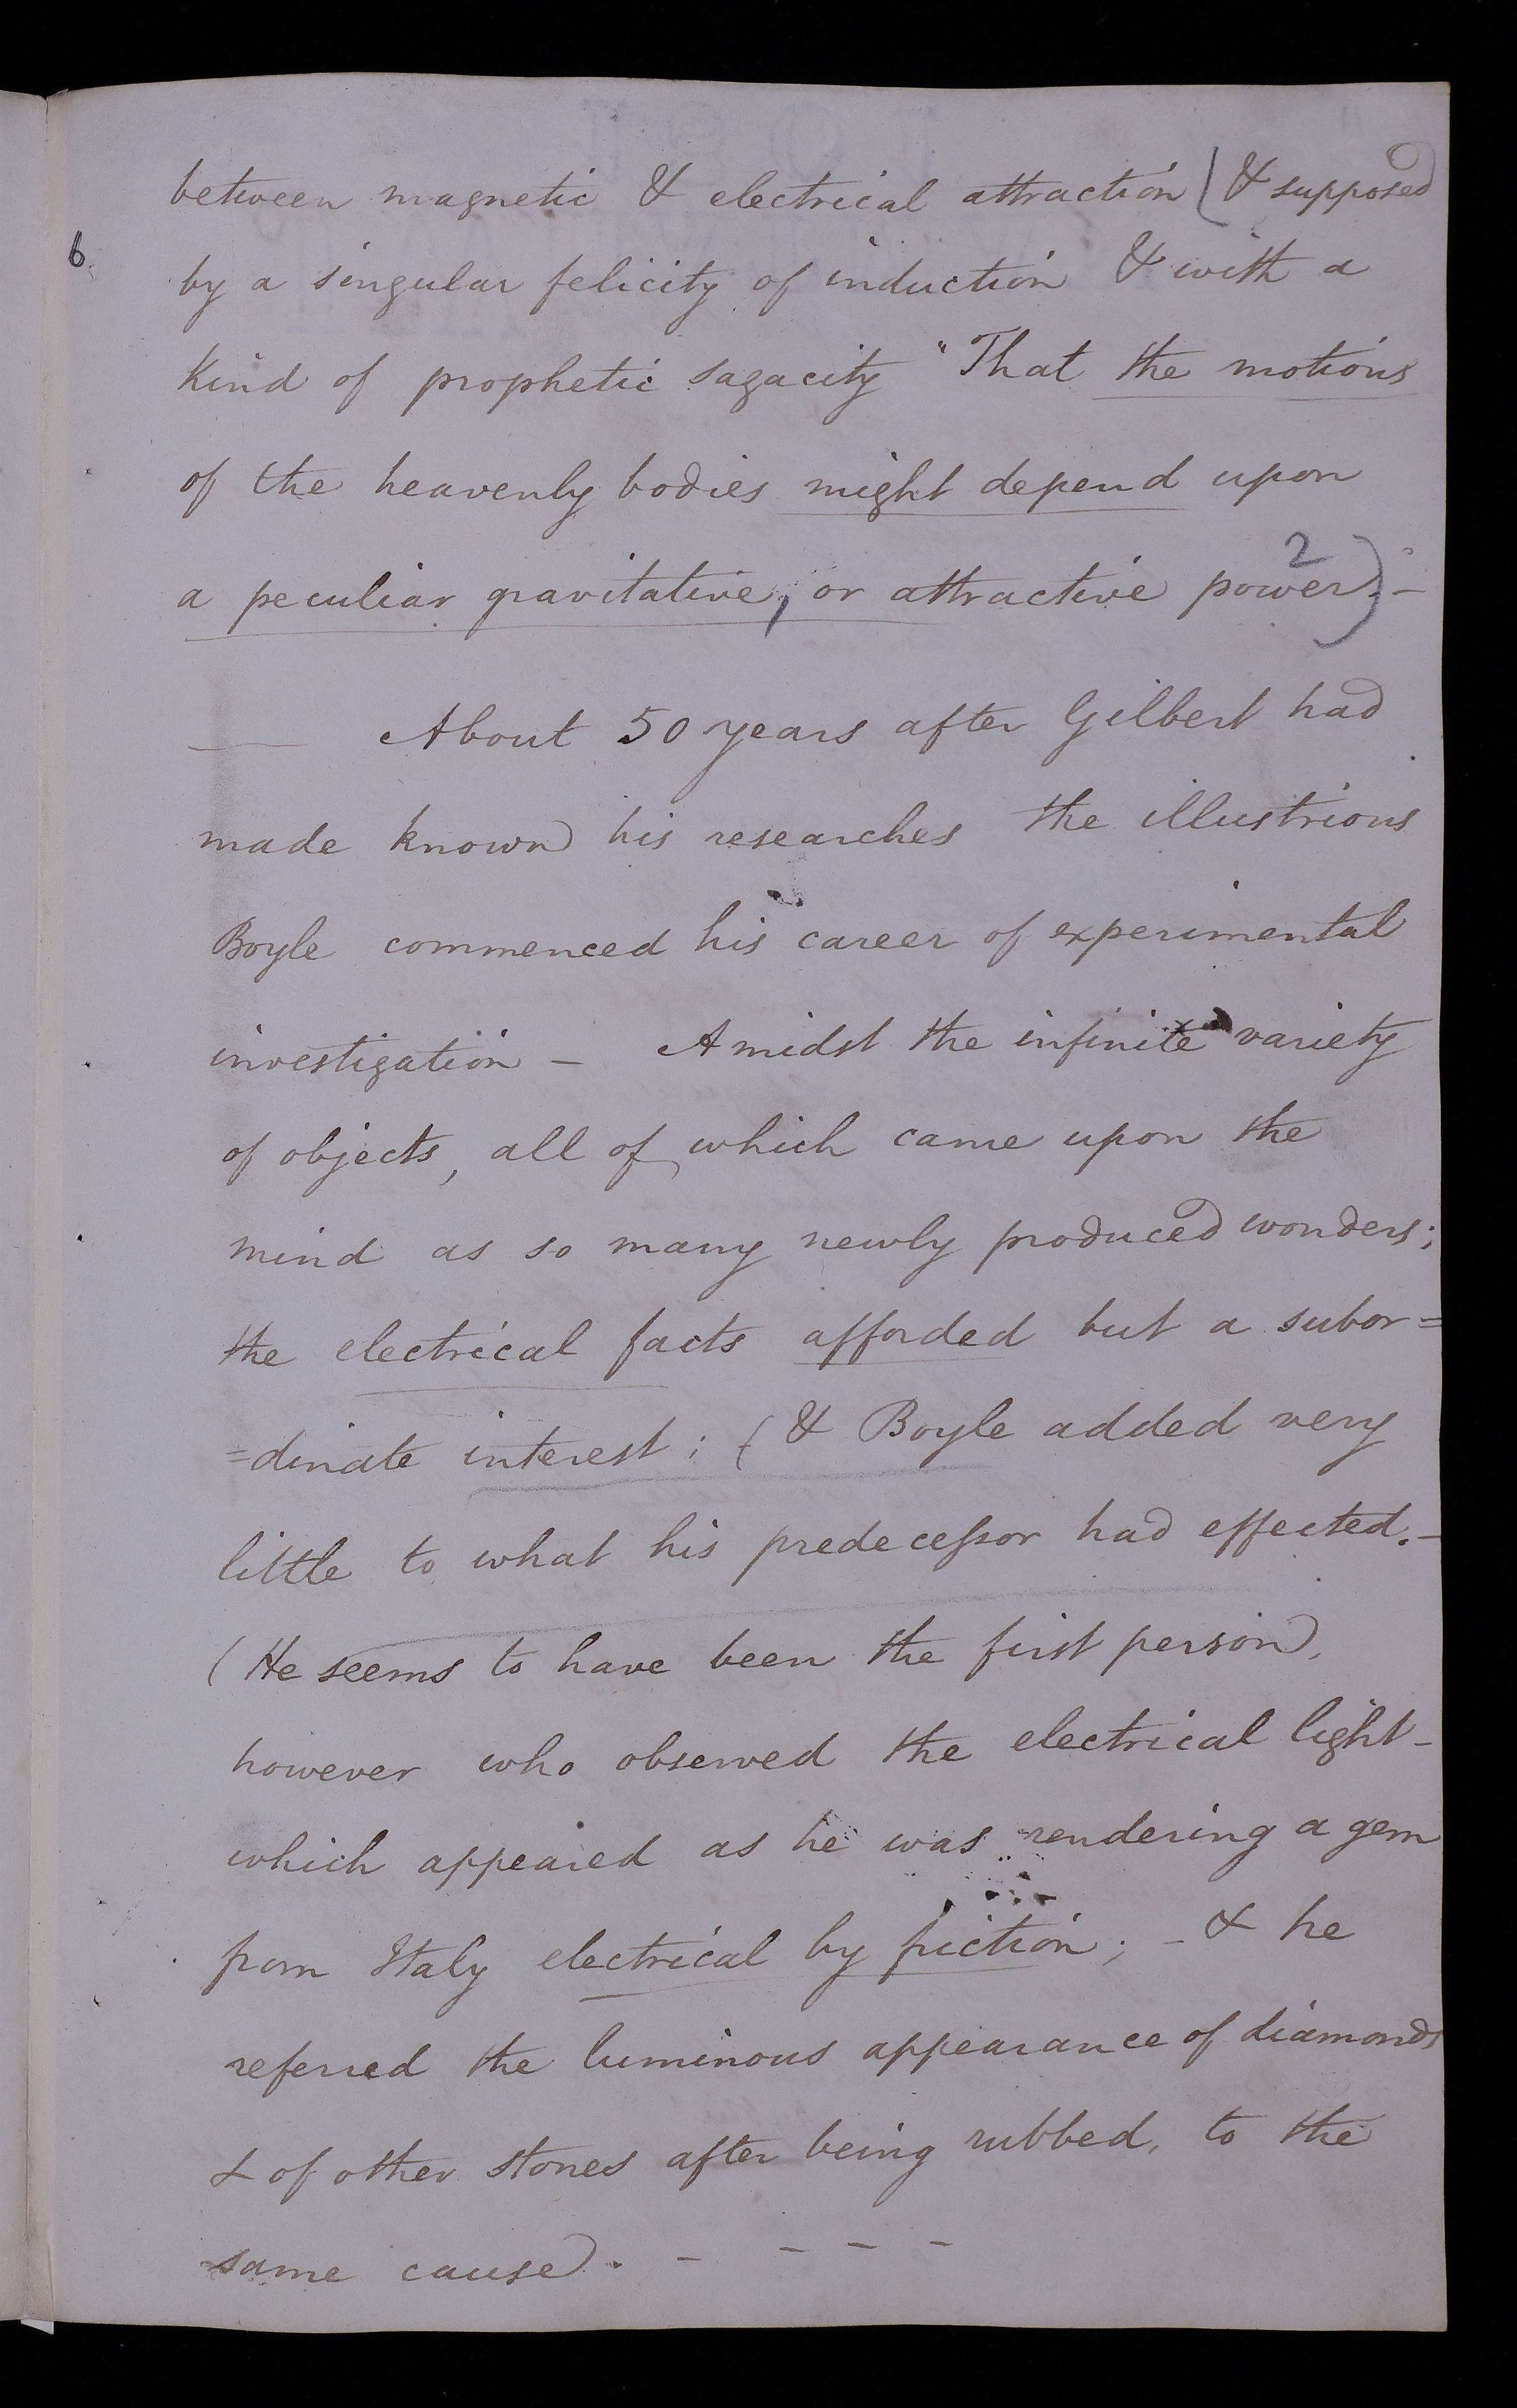 between magnetic & electrical attraction (& supposed
6.
by a singular felicity of induction & with a
kind of prophetic sagacity "That the motions
of the heavenly bodies might depend upon
2
a peculiar gravitative, or attractive power)" -
About 50 years after Gilbert had
made known his researches the illustrious
Boyle commenced his career of experimental
investigation - Amidst the infinite variety
of objects, all of which came upon the
mind as so many newly produced wonders;
the electrical facts afforded but a subor=
=dinate interest; (& Boyle added very
little to what his predecessor had effected. -
(He seems to have been the first person,
however who observed the electrical light -
which appeared as he was rendering a gem
from Italy electrical by friction; - & he
referred the luminous appearance of diamonds
& of other stones after being rubbed, to the
same cause. - - - -